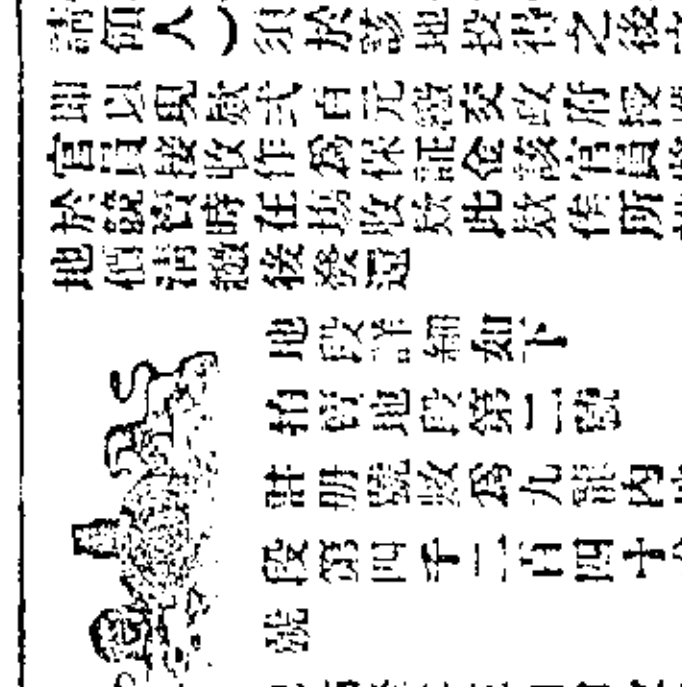 請領人）須於該地投得之後
即以現欵式百元繳交政府授
官員接收作爲保証金該官員
於競賣時在塲收欵此欵俟所
地價清繳後發還
地段詳細如下
拍賣地段第二號
註册號數爲九龍內
段第四千二百四十
號